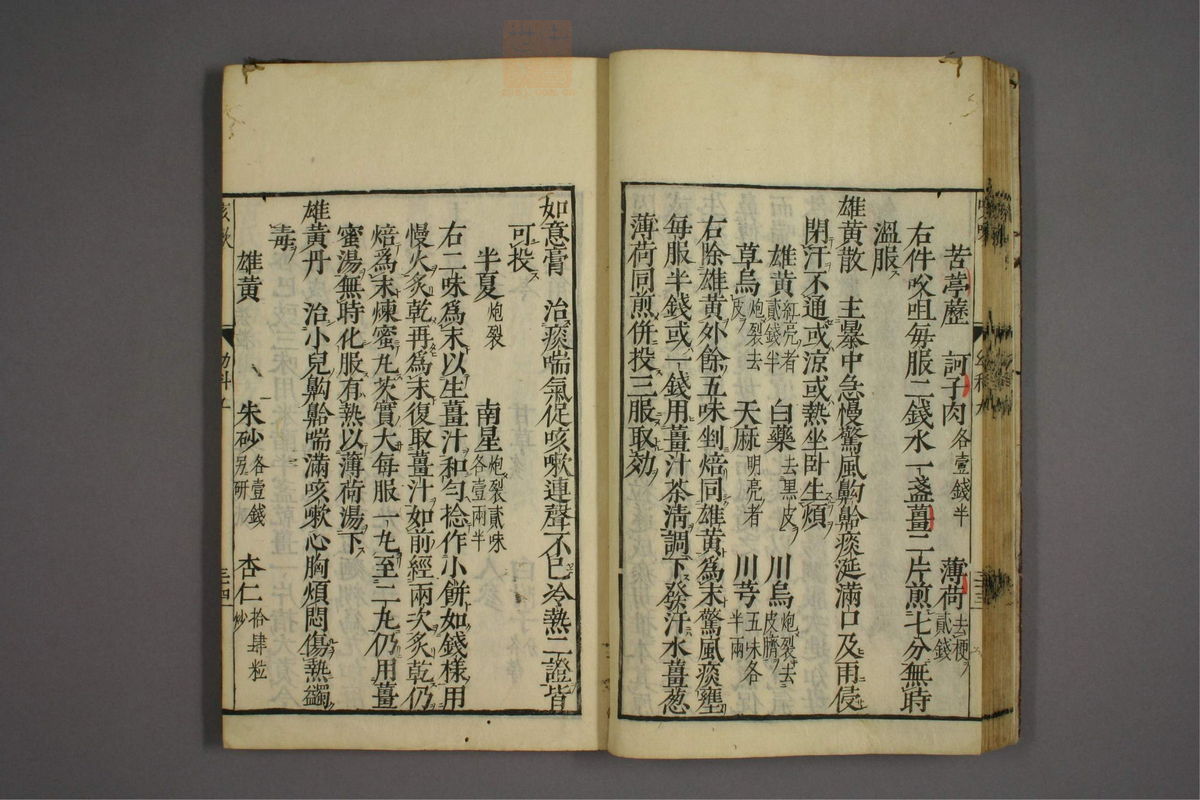 苦葶藶　訶子肉各壹錢半　薄荷去梗貳錢
右件㕮咀每服二錢水一盞薑二片煎七分無時
溫服
雄黃散　主暴中急慢驚風齁䶎痰涎滿口及雨侵
閉汗不通或涼或熱坐卧生煩
雄黃紅亮者貳錢半　白藥去黑皮　川烏炮裂去皮臍
草烏炮裂去皮　天麻明亮者　川芎五味各半兩
右除雄黃外餘五味剉焙同雄黃為末驚風痰壅
每服半錢或一錢用薑汁茶清調下發汗水薑葱
薄荷同煎併投三服取効
如意膏　治痰喘氣促咳嗽連聲不已冷熱二證皆
可投
半夏炮裂　南星炮裂貳味各壹兩半
右二味爲末以生薑汁和勻捻作小餅如錢樣用
慢火炙乾再為末復取薑汁如前經兩次炙乾仍
焙為末煉蜜丸芡實大每服一丸至二丸仍用薑
蜜湯無時化服有熱以薄荷湯下
雄黃丹　治小兒齁䶎喘滿咳嗽心胸煩悶傷熱蠲
毒
雄黃　朱砂各壹錢另研　杏仁拾肆粒炒
三四